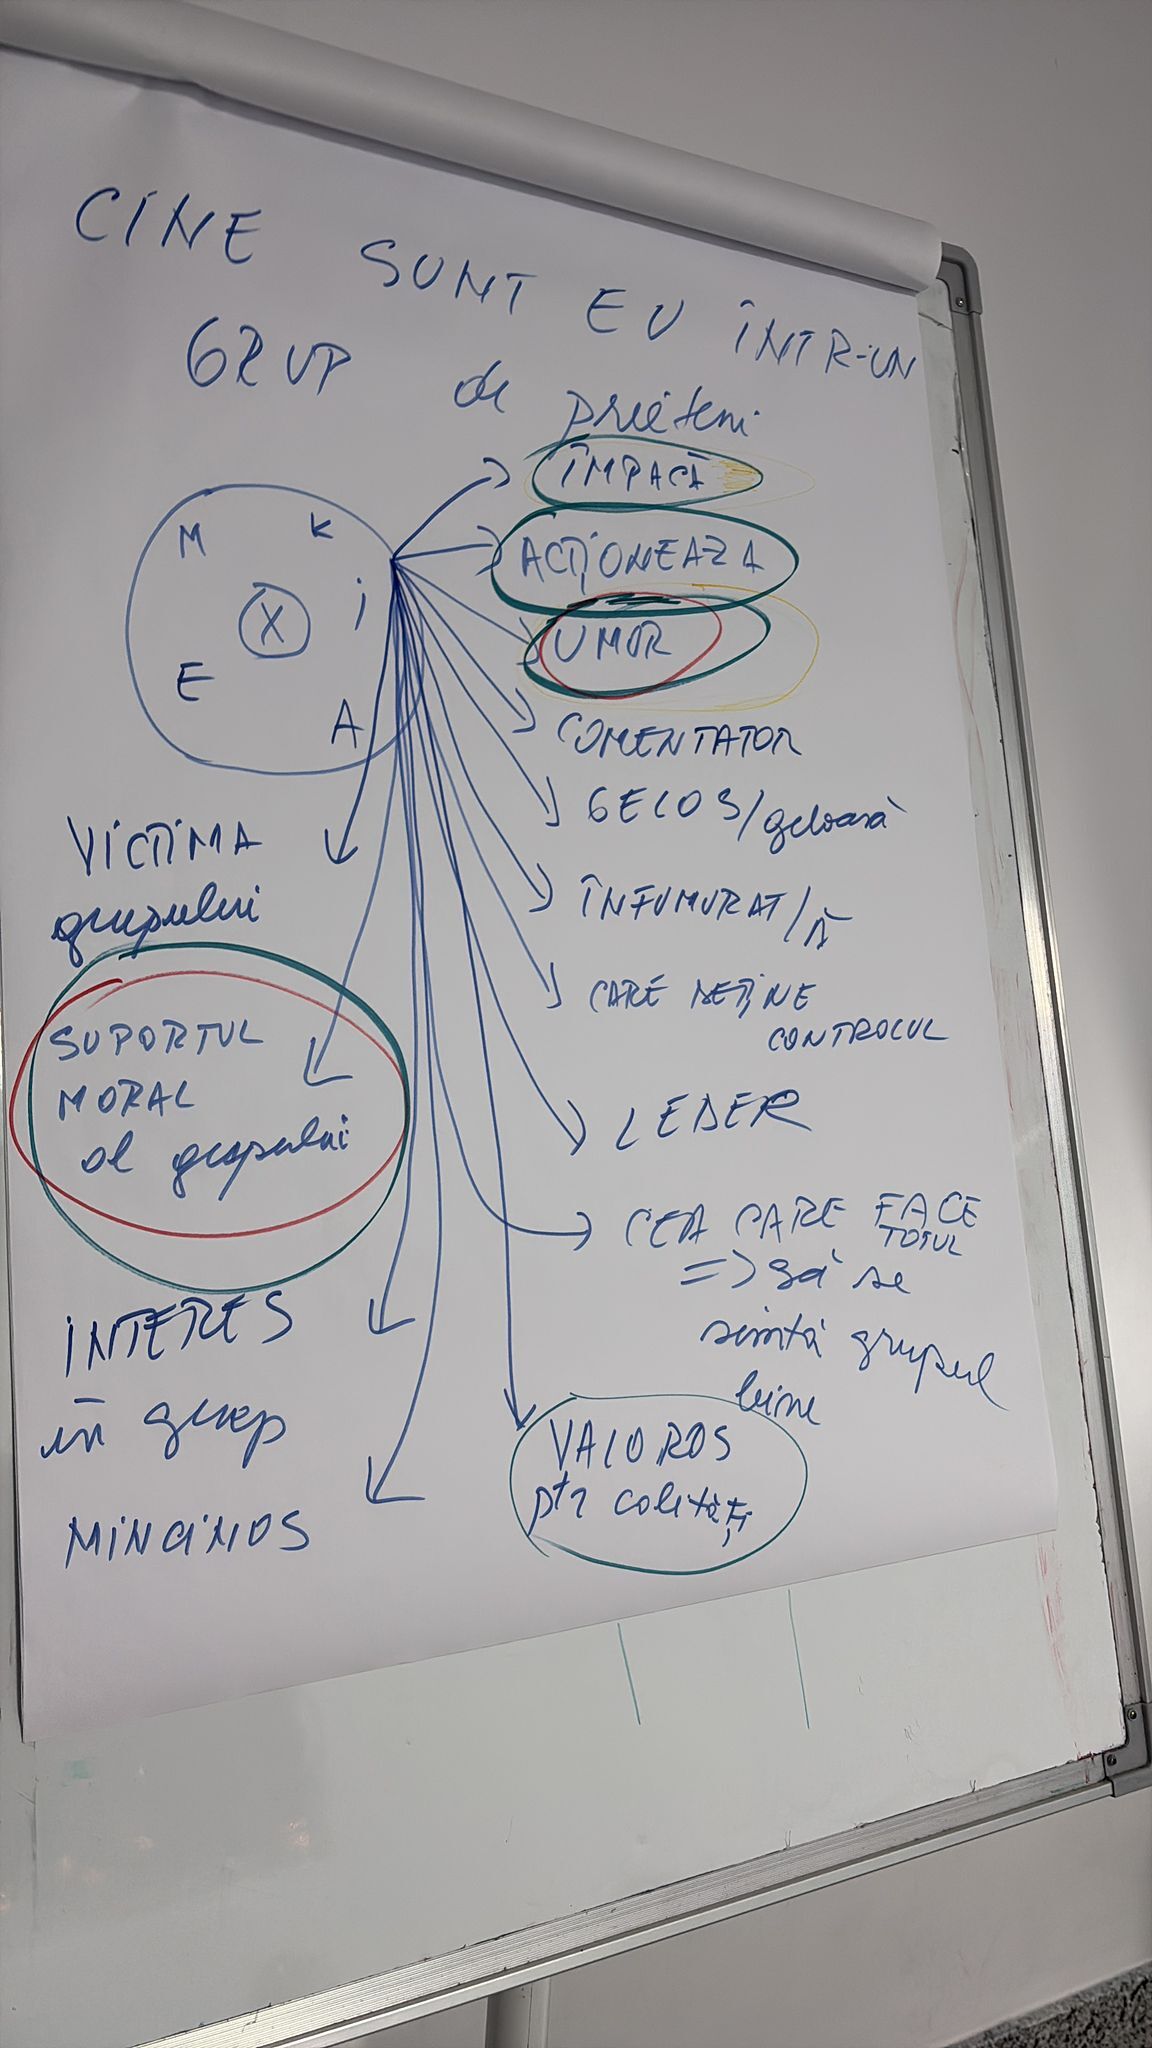 CINE SUNT EU ÎNTR-UN
GRUP de prieteni
M K
X i
E A
ÎMPACĂ
ACȚIONEAZA
UMOR
COMENTATOR
GELOS/geloasă
ÎNFUMURAT/Ă
CARE DEȚINE
CONTROLUL
LEDER
CEA CARE FACE
TOTUL
=> să se
simtă grupul
bine
VALOROS
ptr calități
VICTIMA
grupului
SUPORTUL
MORAL
al grupului
INTERES
în grup
MINCINOS